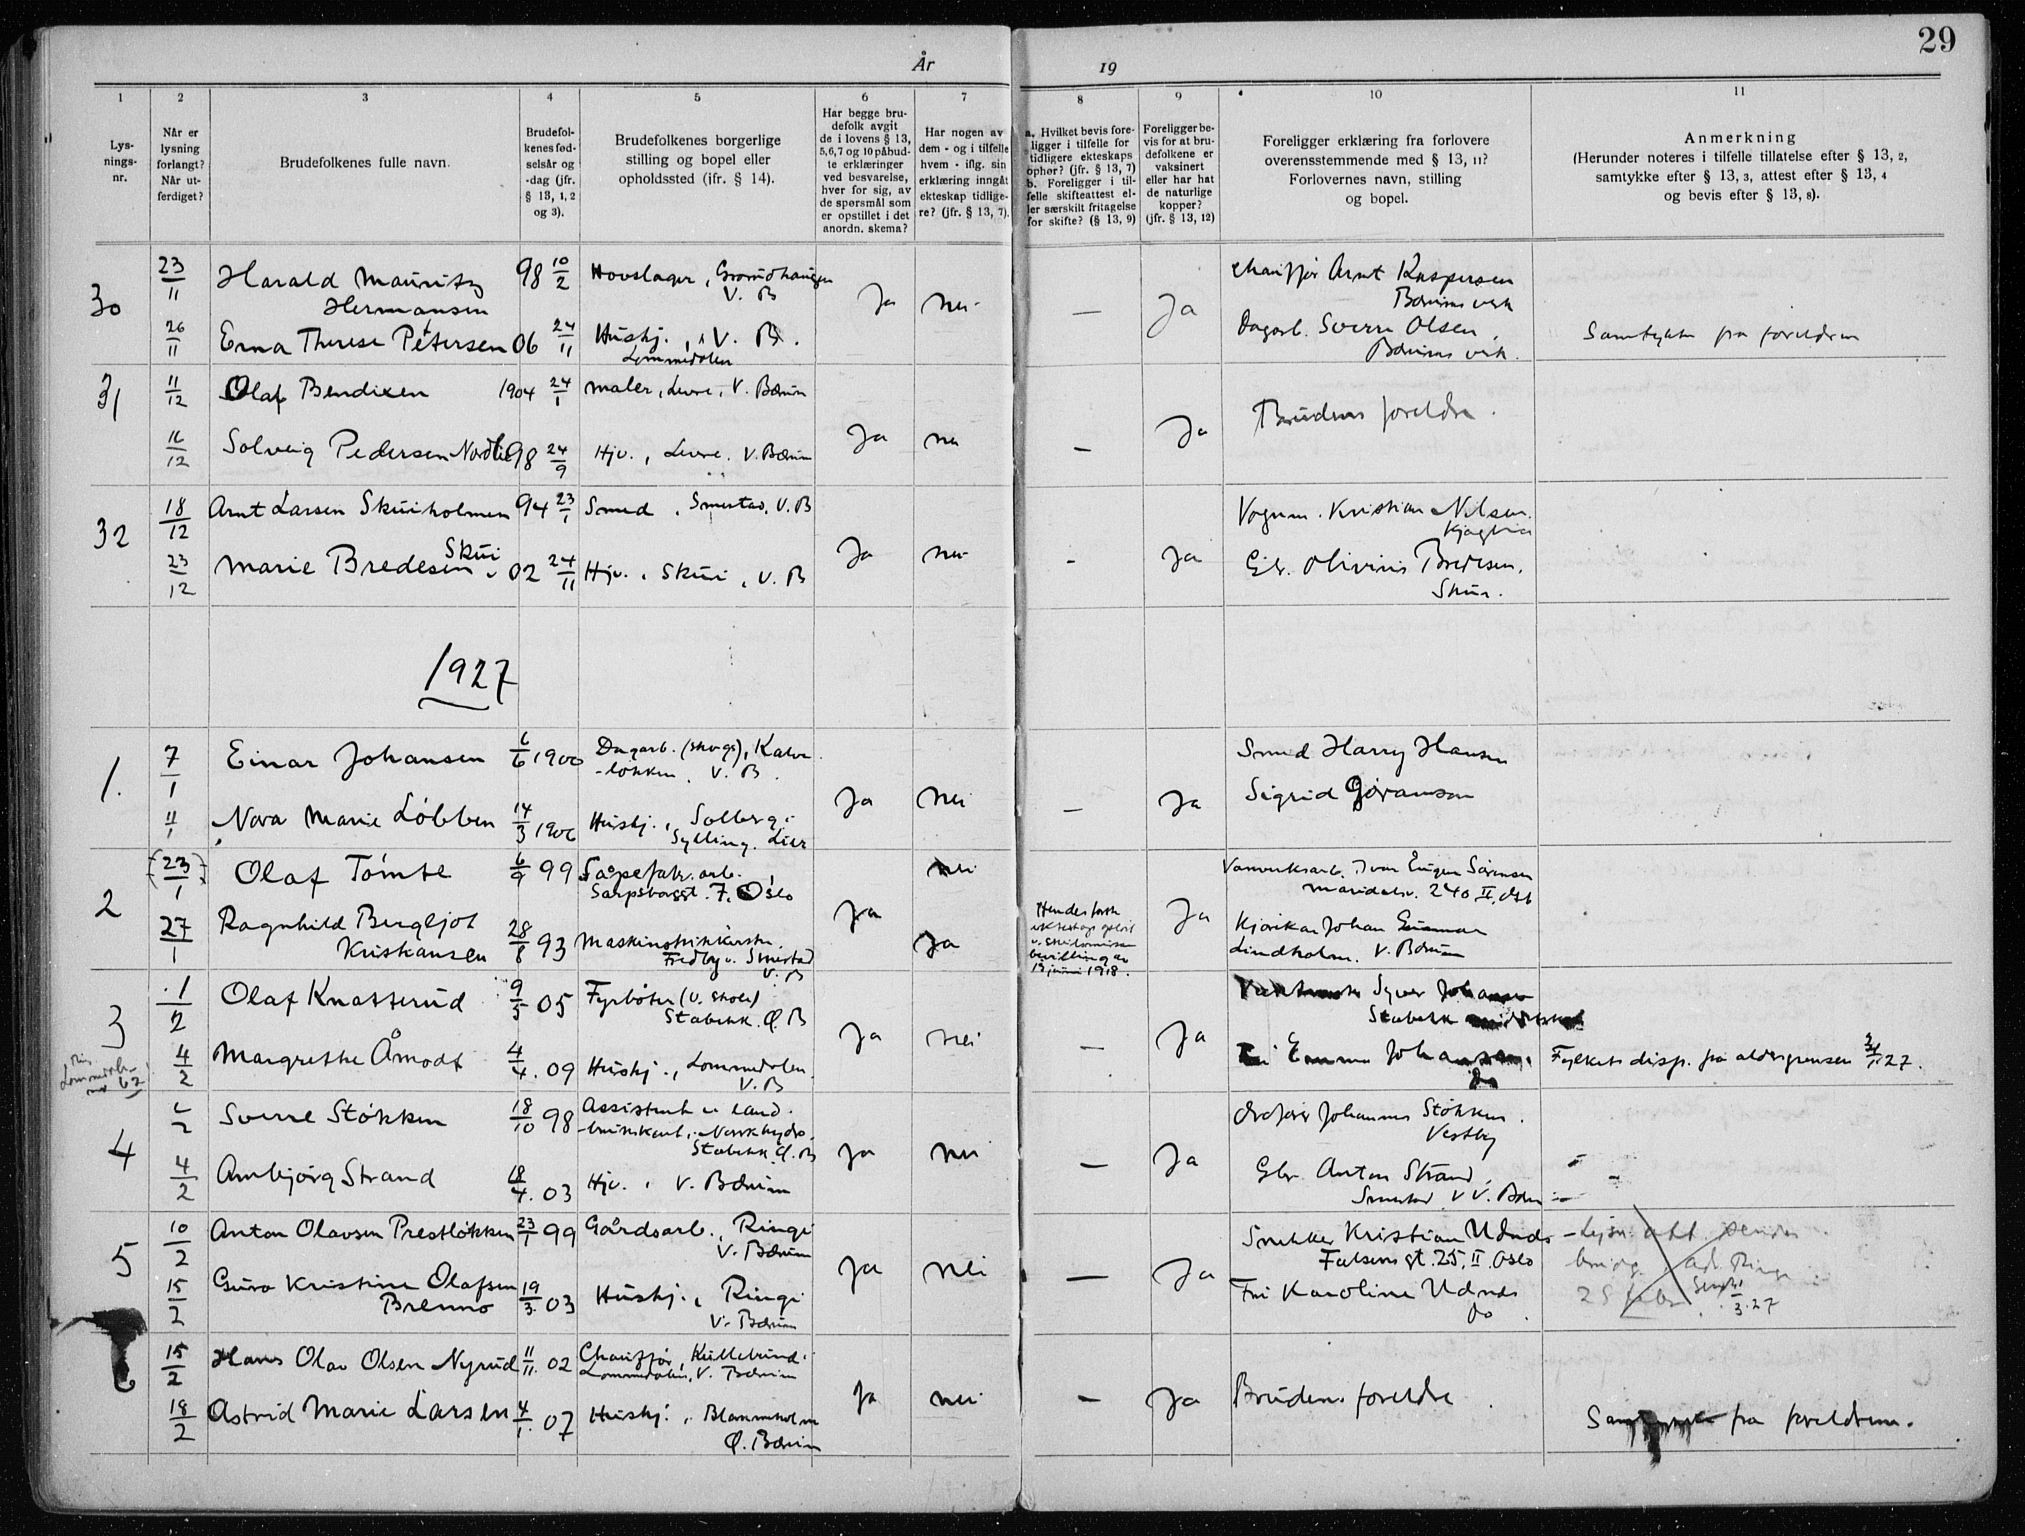 29
År
19
1
2
3
4
5
6
7
8
9
10
11
Lys-
nings-
nr.
Når er
lysning
forlangt?
Når ut-
ferdiget?
Brudefolkenes fulle navn.
Brudefol-
kenes fød-
selsår og
-dag (jfr.
§ 13, 1, 2
og 3).
Brudefolkenes borgerlige
stilling og bopel eller
opholdssted (jfr. § 14).
Har begge bru-
defolk avgit
de i lovens § 13,
5,6,7 og 10 påbud-
te erklæringer
ved besvarelse,
hver for sig, av
de spørsmål som
er opstillet i det
anordn. skema?
Har nogen av
dem - og i tilfelle
hvem - iflg. sin
erklæring inngåt
ekteskap tidlige-
re? (jfr. § 13, 7).
a. Hvilket bevis fore-
ligger i tilfelle for
tidligere ekteskaps
ophør? (jfr. § 13, 7)
b. Foreligger i til-
felle skifteattest el-
ler særskilt fritagelse
for skifte? (§ 13, 9)
Foreligger be-
vis for at bru-
defolkene er
vaksinert
eller har hat
de naturlige
kopper?
(jfr. § 13, 12)
Foreligger erklæring fra forlovere
overensstemmende med § 13, 11?
Forlovernes navn, stilling
og bopel.
Anmerkning
(Herunder noteres i tilfelle tillatelse efter § 13, 2,
samtykke efter § 13, 3, attest efter § 13, 4
og bevis efter § 13, 8).
30
23/11 Harald Mauritz 98 10/2 Hovslager, V. B Chauffør Arnt Kaspersen
Hermansen Ja nei — Ja Bærums verk
26/11 Erna Therese Petersen 06 24/11 Hushj., V. B. Dagarb. Sverre Olsen, Samtykke fra foreldrene
Lommedalen Bærums verk.
31 11/12 Olaf Bendixen 1904 24/1 Maler, Levre, V. Bærum
Ja nei — Ja Brudens foreldre.
16/12 Solveig Pedersen Nordli 98 24/9 Hjv., Levre. V. Bærum
32 18/12 Arnt Larsen Skuiholmen 94 23/1 Smed, Smestad, V. B Vognm. Kristian Nilsen.
Ja nei - Ja
23/12 Marie Bredesen Skui 02 24/11 Hjv., Skui, V. B Gbr. Olivius Bredesen.
Skui.
1927
1. 7/1 Einar Johansen 6/6 1900 Dagarb. (skogs), Kalve-
-løkken. V. B. Smed Harry Hansen
Ja nei — Ja Sigrid Gøranson
11/1 Nora Marie Løbben 14/3 1906 Hushj., Solberg
Sylling. Lier
2 (23/1) Olaf Tømte 6/9 99 Såpefabr. arb.
Sarpsborggt. 7. Oslo nei Ivar Eugen Sørensen
Maridalsv. 240 II. Oslo
Ja Ja
27/1 Ragnhild Bergljot
Kristiansen 28/8 93
Smestad
V. B Ja
bevilling av
13 juni 1918.
Johan
Lindholm. V. Bærum
3 1/2 Olaf Knatterud 9/5 05 Fyrbøter (v. skole)
Stabekk. Ø. B Syver Johansen
Stabekk
Ja nei — Ja
4/2 Margrethe Åmodt 4/4. 09 Hushj., Lommedalen.
V. B Emma Johansen.
do Fylkets disp. fra aldersgrensen 27.
4 2/2 Sverre Støkken 18/10 98 Assistent v. land-
Norsk hydro.
Stabekk Ø. B Johannes Støkken.
Vestby
Ja nei — Ja
4/2 Anbjørg Strand 18/4. 03 Hjv., V. Bærum Gbr. Anton Strand,
Smestad, V. Bærum
5 10/2 Anton Olavsen Prestløkken 23/1 99 Gårdsarb., Ringi
V. Bærum Snekker Kristian Udnæs
Falsens gt. 25. II. Oslo
Ja nei — Ja
15/2 Guro Kristine Olafsen
Brenno 19/3. 03 Hushj., Ringi
V. Bærum Fru Karoline Udnæs
do
Sendt
1/3.27
15/2 Hans Olav Olsen Nyrud 11/11. 02 Chauffør,
Lommedalen, V. Bærum
Ja nei — Ja Brudens foreldre.
18/2 Astrid Marie Larsen 4/1. 07 Hushj., Blommeholm
Ø. Bærum Samtykke fra foreldrene.